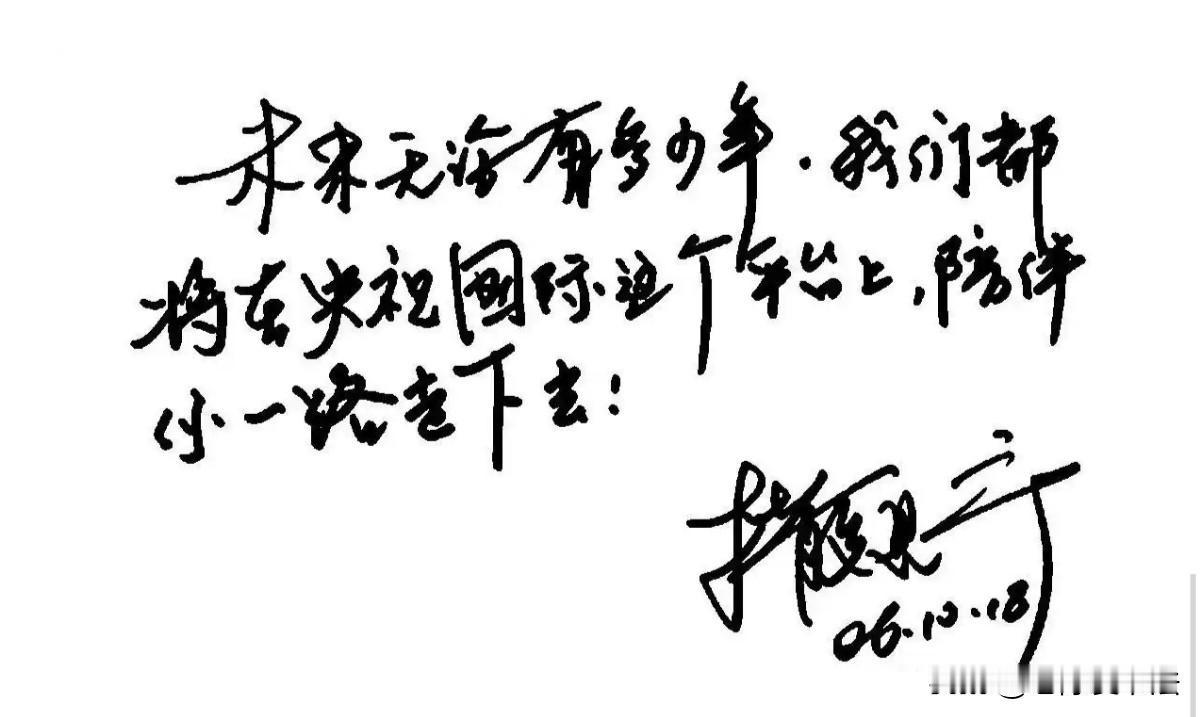 未来无论有多少年.我们都
将在央视国际这个平台上,陪伴
你一路走下去!
06.10.18